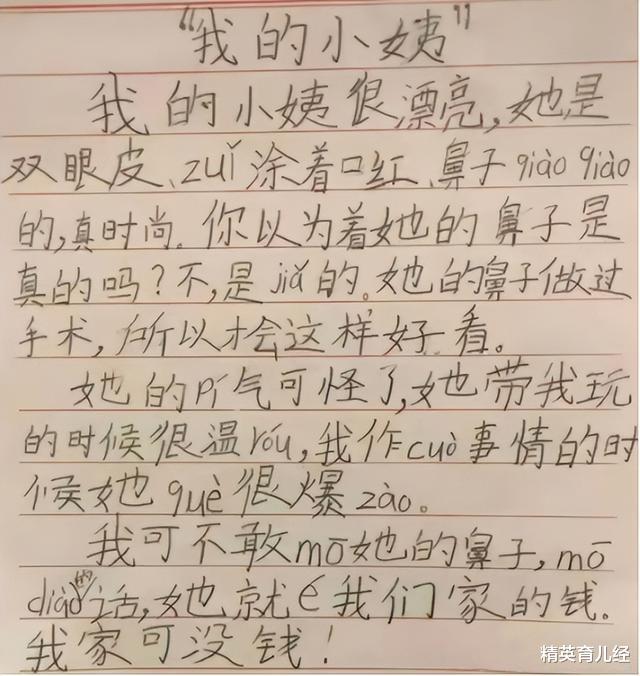 “我的小姨”
我的小姨很漂亮,她是
双眼皮、zuǐ涂着口红、鼻子qiào qiào
的,真时尚。你以为着她的鼻子是
真的吗?不,是jiǎ的。她的鼻子做过
手术,所以才会这样好看。
她的pí气可怪了,她带我玩
的时候很温róu,我作cuò事情的时
候她què很爆zào。
我可不敢mō她的鼻子,mō
diào的话,她就é我们家的钱。
我家可没钱!
精英育儿经